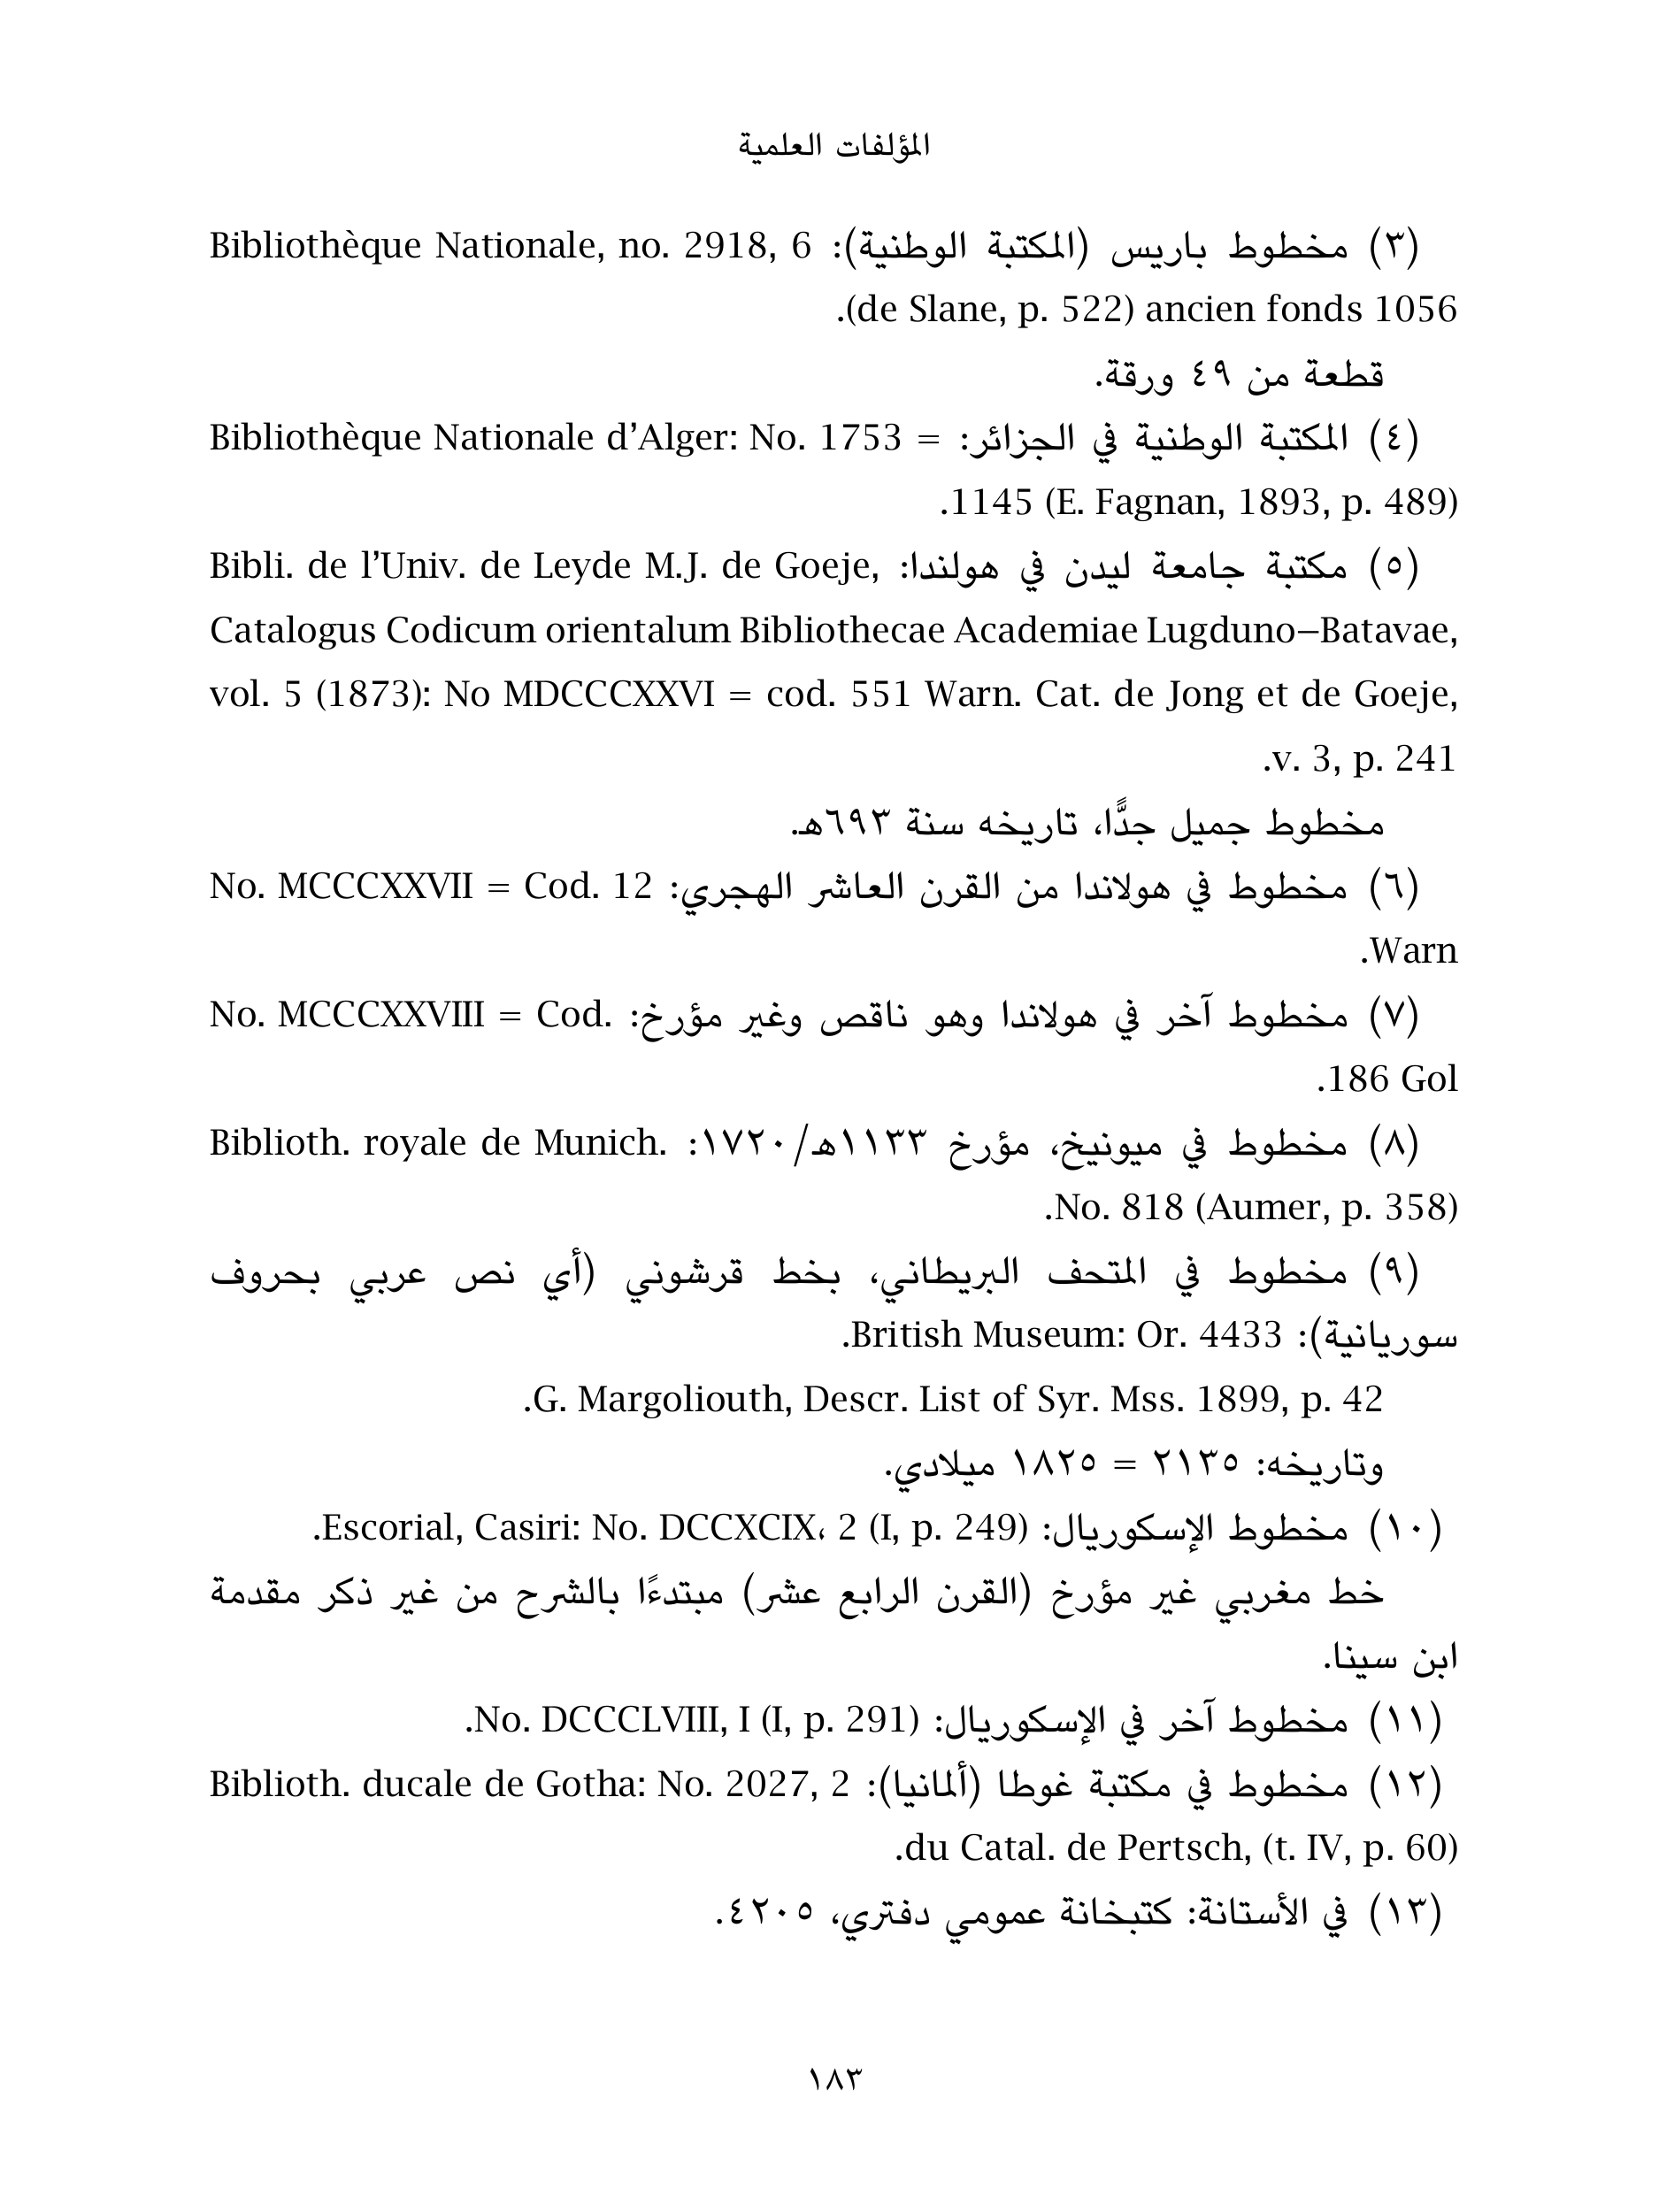 المؤلفات العلمية
(٣) مخطوط باريس (المكتبة الوطنية): Bibliothèque Nationale, no. 2918, 6
(de Slane, p. 522) ancien fonds 1056.
قطعة من ٤٩ ورقة.
(٤) المكتبة الوطنية في الجزائر: Bibliothèque Nationale d’Alger: No. 1753 =
1145 (E. Fagnan, 1893, p. 489).
(٥) مكتبة جامعة ليدن في هولندا: Bibli. de l’Univ. de Leyde M.J. de Goeje,
Catalogus Codicum orientalum Bibliothecae Academiae Lugduno–Batavae,
vol. 5 (1873): No MDCCCXXVI = cod. 551 Warn. Cat. de Jong et de Goeje,
v. 3, p. 241.
مخطوط جميل جدًّا، تاريخه سنة ٦٩٣هـ.
(٦) مخطوط في هولاندا من القرن العاشر الهجري: No. MCCCXXVII = Cod. 12
Warn.
(٧) مخطوط آخر في هولاندا وهو ناقص وغير مؤرخ: No. MCCCXXVIII = Cod.
186 Gol.
(٨) مخطوط في ميونيخ، مؤرخ ١١٣٣هـ/١٧٢٠: Biblioth. royale de Munich.
No. 818 (Aumer, p. 358).
(٩) مخطوط في المتحف البريطاني، بخط قرشوني (أي نص عربي بحروف
سوريانية): British Museum: Or. 4433.
G. Margoliouth, Descr. List of Syr. Mss. 1899, p. 42.
وتاريخه: ٢١٣٥ = ١٨٢٥ ميلادي.
(١٠) مخطوط الإسكوريال: Escorial, Casiri: No. DCCXCIX، 2 (I, p. 249).
خط مغربي غير مؤرخ (القرن الرابع عشر) مبتدءًا بالشرح من غير ذكر مقدمة
ابن سينا.
(١١) مخطوط آخر في الإسكوريال: No. DCCCLVIII, I (I, p. 291).
(١٢) مخطوط في مكتبة غوطا (ألمانيا): Biblioth. ducale de Gotha: No. 2027, 2
du Catal. de Pertsch, (t. IV, p. 60).
(١٣) في الأستانة: كتبخانة عمومي دفتري، ٤٢٠٥.
١٨٣